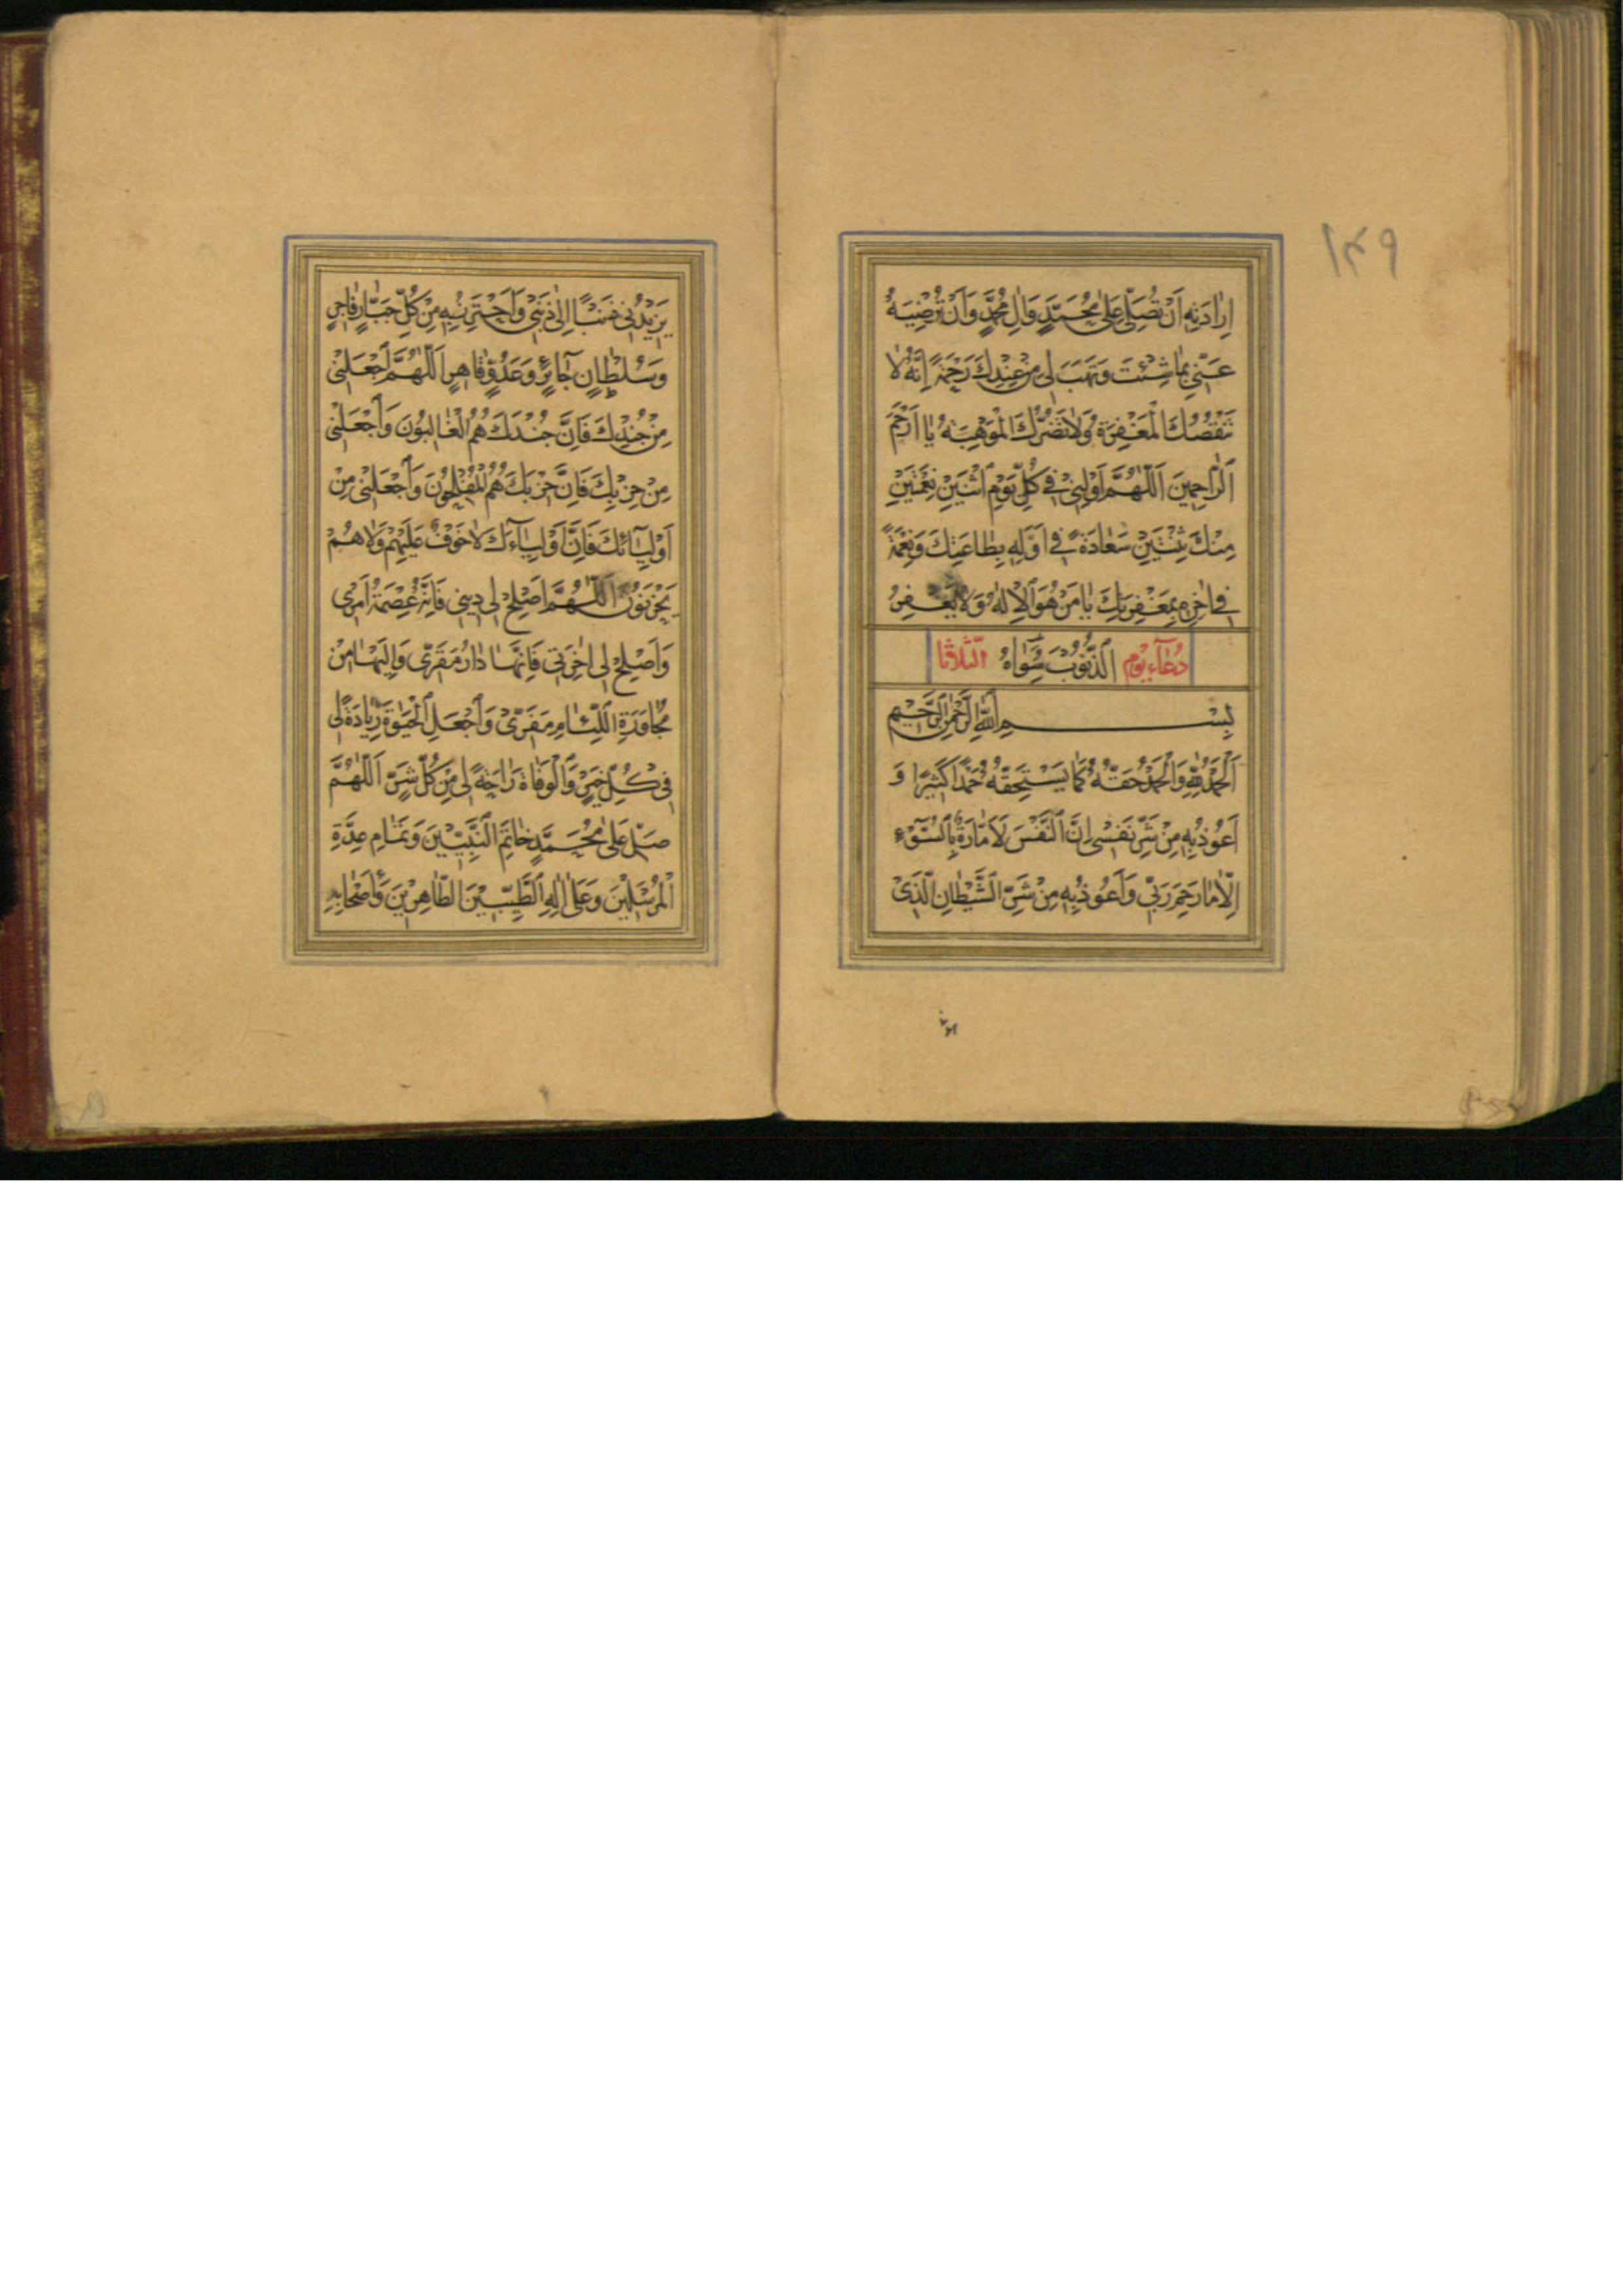 ١٤٩
اِرادَتِهِ اَنْ تُصَلِّیَ عَلیٰ مُحَمَّدٍ وَاٰلِ مُحَمَّدٍ وَاَنْ تُرْضِیَهُ
عَنّی بِمَا شِئْتَ وَتَهَبَ لی مِنْ عِنْدِكَ رَحْمَةً اِنَّهُ لا
تَنْقُصُكَ الْمَغْفِرَةُ وَلا تَضُرُّكَ الْمَوْهِبَةُ یا اَرْحَمَ
الرّاحِمینَ اَللّٰهُمَّ اَوْلِنی فی كُلِّ یَوْمِ اثْنَیْنِ نِعْمَتَیْنِ
مِنْكَ ثِنْتَیْنِ سَعادَةً فی اَوَّلِهِ بِطاعَتِكَ وَنِعْمَةً
فی اٰخِرِهِ بِمَغْفِرَتِكَ یا مَنْ هُوَ الْاِلٰهُ وَلا یَغْفِرُ
دُعآءِ یَوْم الذُّنُوبَ سِواهُ الثّلاثا
بِسْمِ اللّٰهِ الرَّحْمٰنِ الرَّحیمِ
اَلْحَمْدُ لِلّٰهِ وَالْحَمْدُ حَقُّهُ كَما یَسْتَحِقُّهُ حَمْدًا كَثیرًا وَ
اَعُوذُ بِهِ مِنْ شَرِّ نَفْسی اِنَّ النَّفْسَ لَاَمّارَةٌ بِالسُّوٓءِ
اِلّا ما رَحِمَ رَبّی وَاَعُوذُ بِهِ مِنْ شَرِّ الشَّیْطانِ الَّذی
یَزیدُنی ذَنْبًا اِلیٰ ذَنْبی وَاَحْتَرِزُ بِهِ مِنْ كُلِّ جَبّارٍ فاجِرٍ
وَسُلْطانٍ جآئِرٍ وَعَدُوٍّ قاهِرٍ اَللّٰهُمَّ اجْعَلْنی
مِنْ جُنْدِكَ فَاِنَّ جُنْدَكَ هُمُ الْغالِبُونَ وَاجْعَلْنی
مِنْ حِزْبِكَ فَاِنَّ حِزْبَكَ هُمُ الْمُفْلِحُونَ وَاجْعَلْنی مِنْ
اَوْلِیآئِكَ فَاِنَّ اَوْلِیآءَكَ لا خَوْفٌ عَلَیْهِمْ وَلا هُمْ
یَحْزَنُونَ اَللّٰهُمَّ اَصْلِحْ لی دینی فَاِنَّهُ عِصْمَةُ اَمْری
وَاَصْلِحْ لی اٰخِرَتی فَاِنَّها دارُ مَقَرّی وَاِلَیْها مِنْ
مُجاوَرَةِ اللِّئامِ مَفَرّی وَاجْعَلِ الْحَیٰوةَ زِیادَةً لی
فی كُلِّ خَیْرٍ وَالْوَفاةَ راحَةً لی مِنْ كُلِّ شَرٍّ اَللّٰهُمَّ
صَلِّ عَلیٰ مُحَمَّدٍ خاتَمِ النَّبِیّینَ وَتَمامِ عِدَّةِ
الْمُرْسَلینَ وَعَلیٰ اٰلِهِ الطَّیِّبینَ الطّاهِرینَ وَاَصْحابِهِ